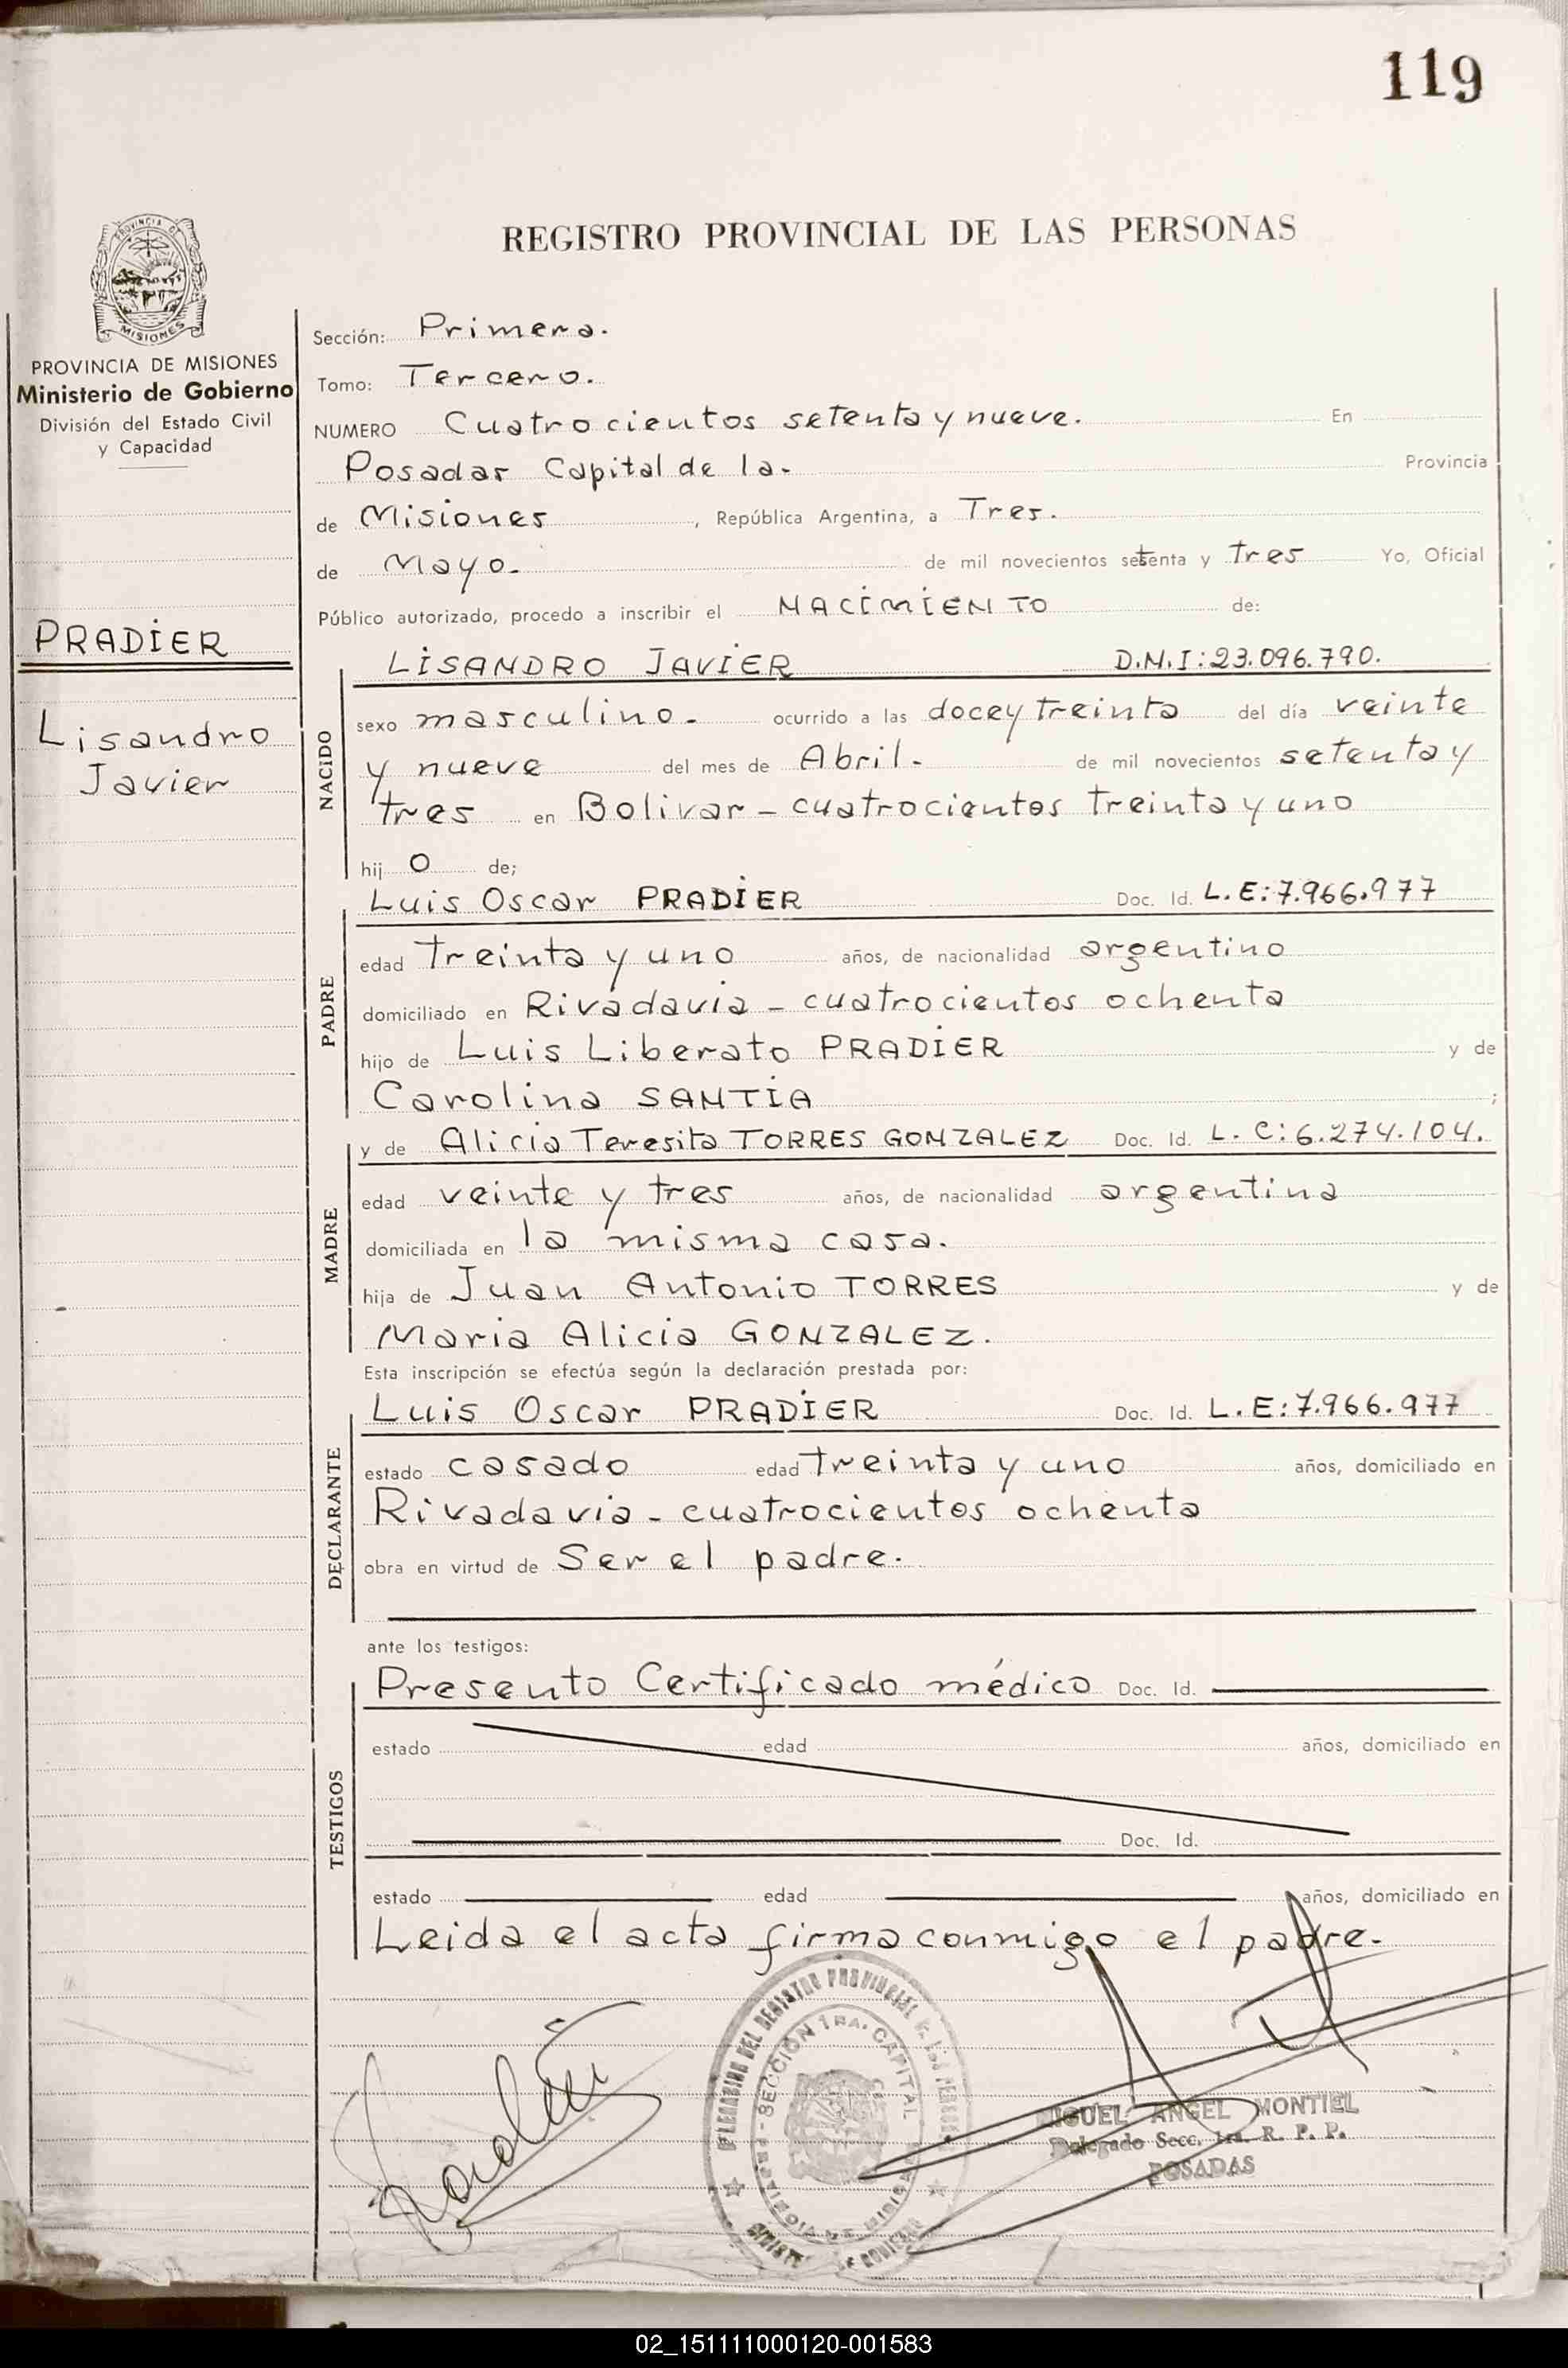 119
REGISTRO PROVINCIAL DE LAS PERSONAS
PROVINCIA DE MISIONES
Ministerio de Gobierno
División del Estado Civil
y Capacidad
PRADIER
Lisandro
Javier
Sección: Primera.
Tomo: Tercero.
NUMERO Cuatrocientos setenta y nueve. En
Posadas Capital de la. Provincia
de Misiones, República Argentina, a Tres.
de Mayo. de mil novecientos setenta y tres Yo, Oficial
Público autorizado, procedo a inscribir el NACIMIENTO de:
LISANDRO JAVIER D.N.I: 23.096.790.
NACIDO
sexo masculino. ocurrido a las doce y treinta del día veinte
y nueve del mes de Abril. de mil novecientos setenta y
tres en Bolivar - cuatrocientos treinta y uno
hijo de;
Luis Oscar PRADIER Doc. Id. L.E: 7.966.977
PADRE
edad treinta y uno años, de nacionalidad argentino
domiciliado en Rivadavia - cuatrocientos ochenta
hijo de Luis Liberato PRADIER y de
Carolina SANTIA ;
y de Alicia Teresita TORRES GONZALEZ Doc. Id. L. C: 6.274.104.
MADRE
edad veinte y tres años, de nacionalidad argentina
domiciliada en la misma casa.
hija de Juan Antonio TORRES y de
Maria Alicia GONZALEZ.
Esta inscripción se efectúa según la declaración prestada por:
Luis Oscar PRADIER Doc. Id. L.E: 7.966.977
DECLARANTE
estado casado edad treinta y uno años, domiciliado en
Rivadavia - cuatrocientos ochenta
obra en virtud de Ser el padre.
ante los testigos:
Presento Certificado médico Doc. Id.
TESTIGOS
estado edad años, domiciliado en
Doc. Id.
estado edad años, domiciliado en
Leida el acta firma conmigo el padre.
DEL REGISTRO PROVINCIAL
SECCIÓN 1RA. CAPITAL
MIGUEL ANGEL MONTIEL
Delegado Secc. 1ra. R. P. P.
POSADAS
02_151111000120-001583